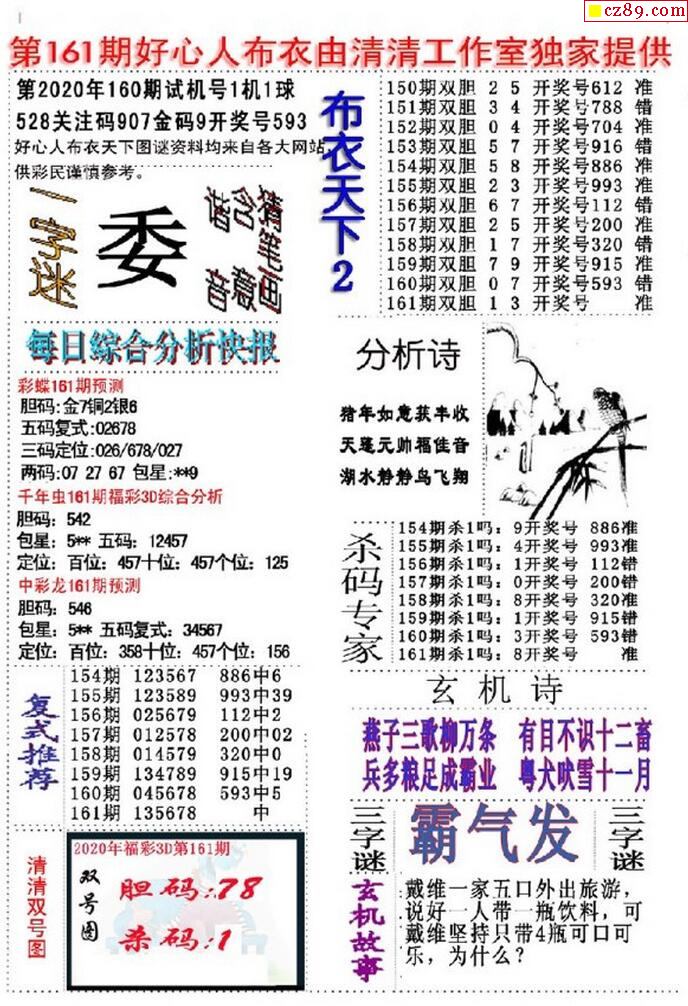 cz89.com
第161期好心人布衣由清清工作室独家提供
第2020年160期试机号1机1球
528关注码907金码9开奖号593
好心人布衣天下图谜资料均来自各大网站,
供彩民谨慎参考。
一字迷
委
猪笔画
含意
谐音
布衣天下2
150期双胆 2 5 开奖号612 准
151期双胆 3 4 开奖号788 错
152期双胆 0 4 开奖号704 准
153期双胆 5 7 开奖号916 错
154期双胆 5 8 开奖号886 准
155期双胆 2 3 开奖号993 准
156期双胆 6 7 开奖号112 错
157期双胆 2 5 开奖号200 准
158期双胆 1 7 开奖号320 错
159期双胆 7 9 开奖号915 准
160期双胆 0 7 开奖号593 错
161期双胆 1 3 开奖号 准
每日综合分析快报
彩蝶161期预测
胆码:金7铜2银6
五码复式:02678
三码定位:026/678/027
两码:07 27 67 包星:**9
千年虫161期福彩3D综合分析
胆码: 542
包星: 5** 五码: 12457
定位: 百位: 457十位: 457个位: 125
中彩龙161期预测
胆码: 546
包星: 5** 五码复式: 34567
定位: 百位: 358十位: 457个位: 156
分析诗
猪年如意获丰收
天蓬元帅福佳音
湖水静静鸟飞翔
杀码专家
154期杀1吗: 9开奖号 886准
155期杀1吗: 4开奖号 993准
156期杀1吗: 1开奖号 112错
157期杀1吗: 0开奖号 200错
158期杀1吗: 8开奖号 320准
159期杀1吗: 1开奖号 915错
160期杀1吗: 3开奖号 593错
161期杀1吗: 8开奖号 准
复式推荐
154期 123567 886中6
155期 123589 993中39
156期 025679 112中2
157期 012578 200中02
158期 014579 320中0
159期 134789 915中19
160期 045678 593中5
161期 135678 中
玄机诗
燕子三歌柳万条 有目不识十二畜
兵多粮足成霸业 粤犬吠雪十一月
三字谜
霸气发
三字谜
清清双号图
2020年福彩3D第161期
双号图
胆码:78
杀码:1
玄机故事
戴维一家五口外出旅游,
说好一人带一瓶饮料, 可
戴维坚持只带4瓶可口可
乐, 为什么?